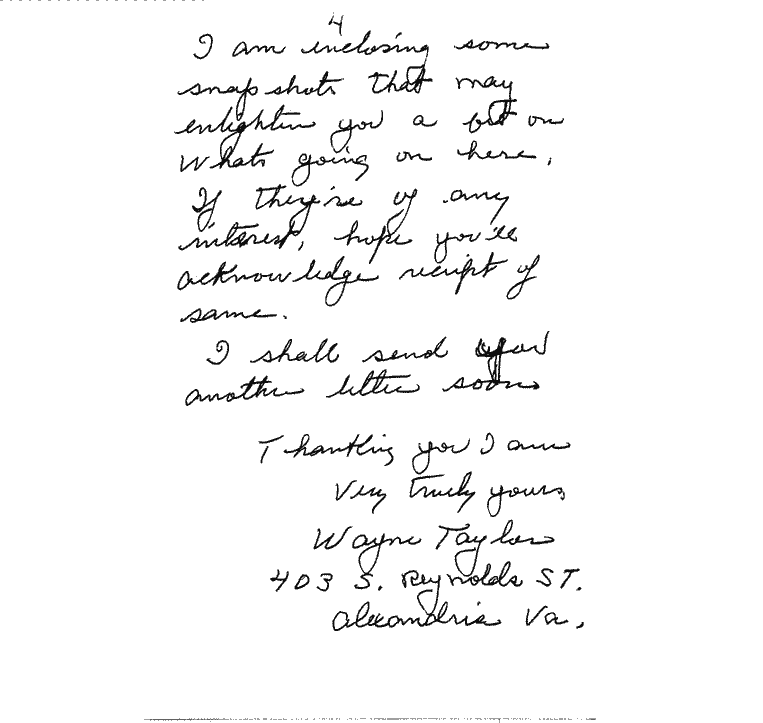 4
I am inclosing some
snap shots that may
enlighten you a bit on
Whats going on here,
If they're of any
interest, hope you'll
acknowledge receipt of
same.
I shall send you
another letter soon
Thanking you I am
Very truly yours
Wayne Taylor
403 S. Reynolds ST.
Alexandria Va,